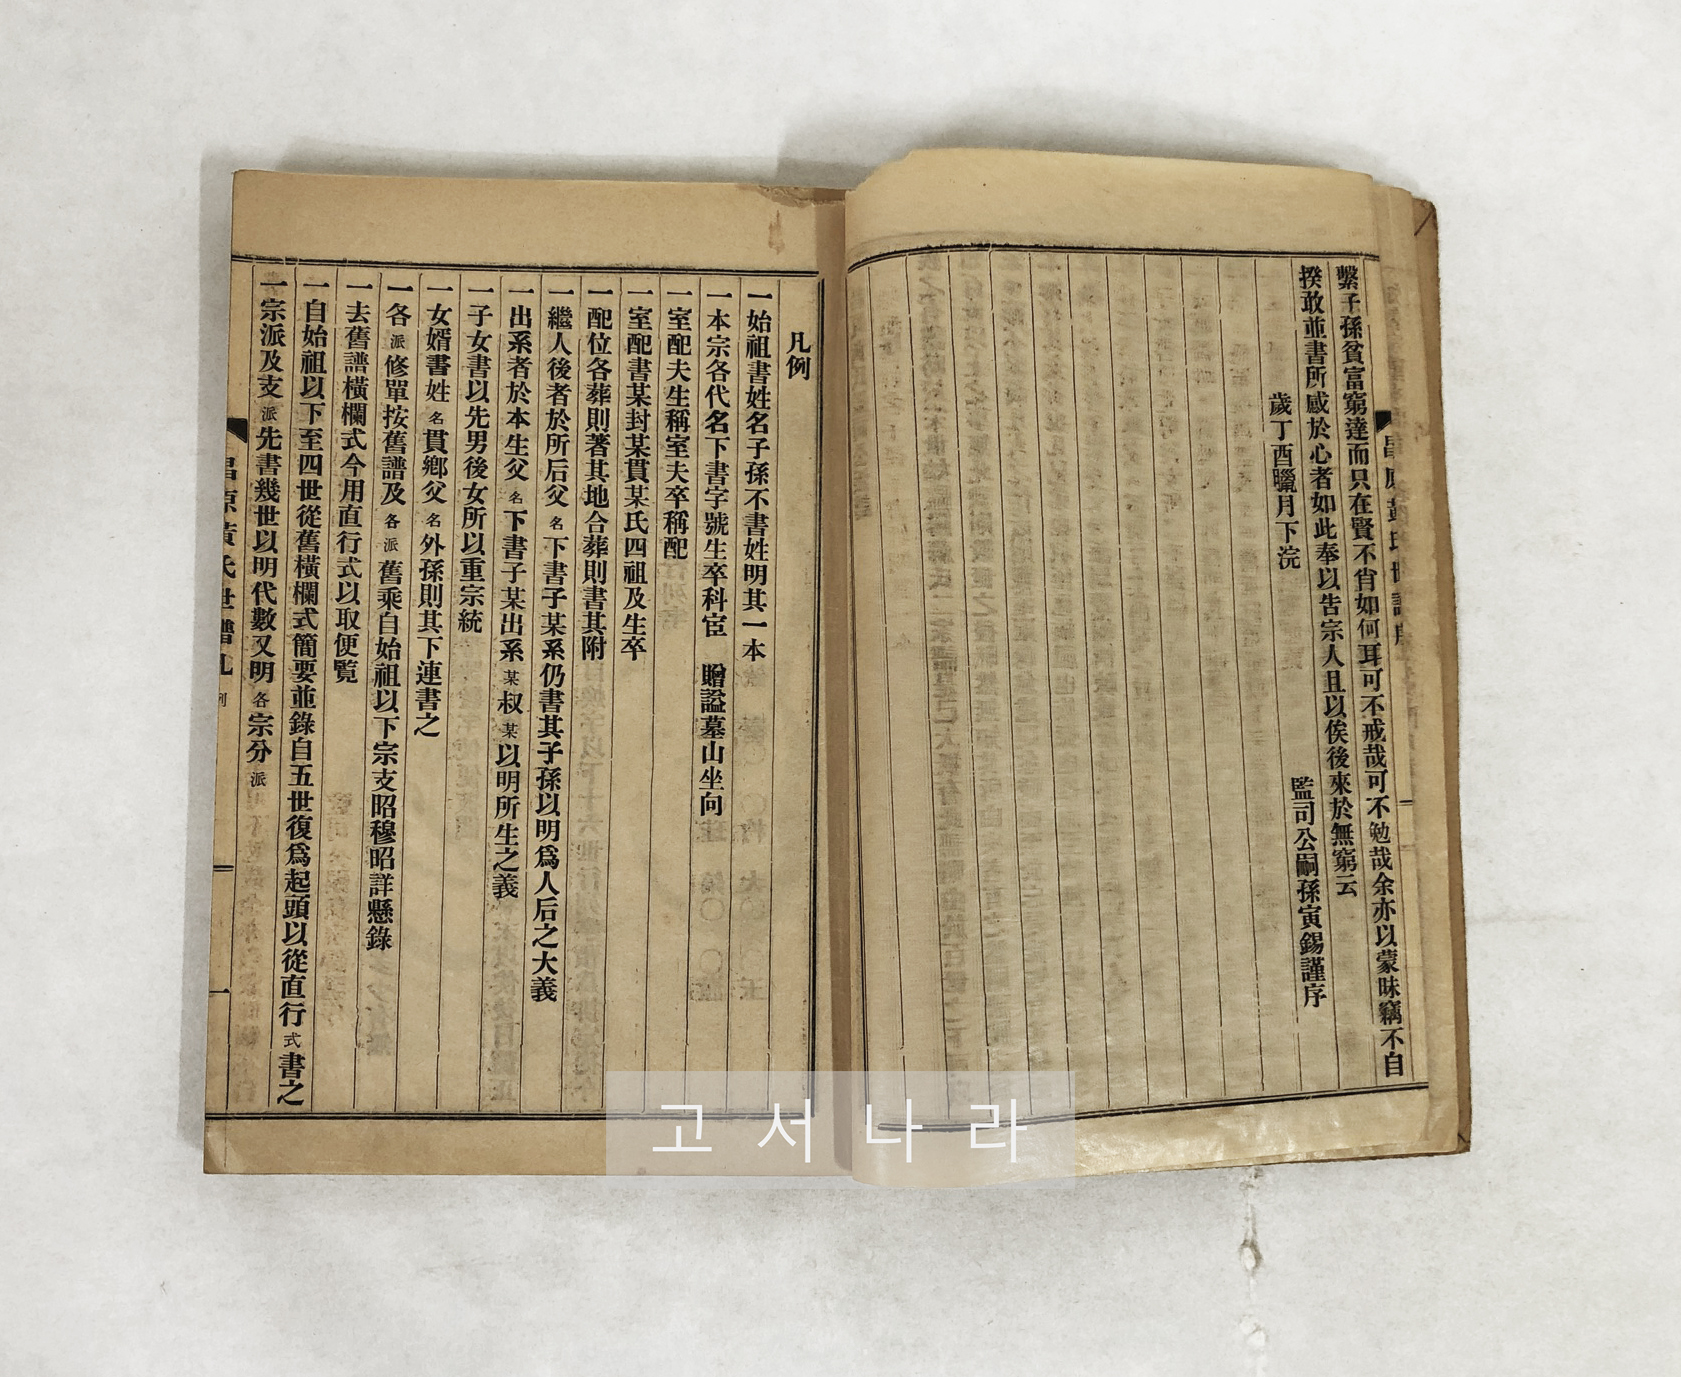 繫子孫貧富窮達而只在賢不肖如何耳可不戒哉可不勉哉余亦以蒙昧竊不自
揆敢並書所感於心者如此奉以告宗人且以俟後來於無窮云
歲丁酉臘月下浣
監司公嗣孫寅錫謹序
凡例
一始祖書姓名子孫不書姓明其一本
一本宗各代名下書字號生卒科宦 贈諡墓山坐向
一室配夫生稱室夫卒稱配
一室配書某封某貫某氏四祖及生卒
一配位各葬則著其地合葬則書其附
一繼人後者於所后父名下書子某系仍書其子孫以明爲人后之大義
一出系者於本生父名下書子某出系某叔某以明所生之義
一子女書以先男後女所以重宗統
一女婿書姓名貫鄕父名外孫則其下連書之
一各派修單按舊譜及各派舊乘自始祖以下宗支昭穆昭詳懸錄
一去舊譜橫欄式今用直行式以取便覧
一自始祖以下至四世從舊橫欄式簡要並錄自五世復爲起頭以從直行式書之
一宗派及支派先書幾世以明代數又明各宗分派
昌原黃氏世譜凡例
一
고서나라